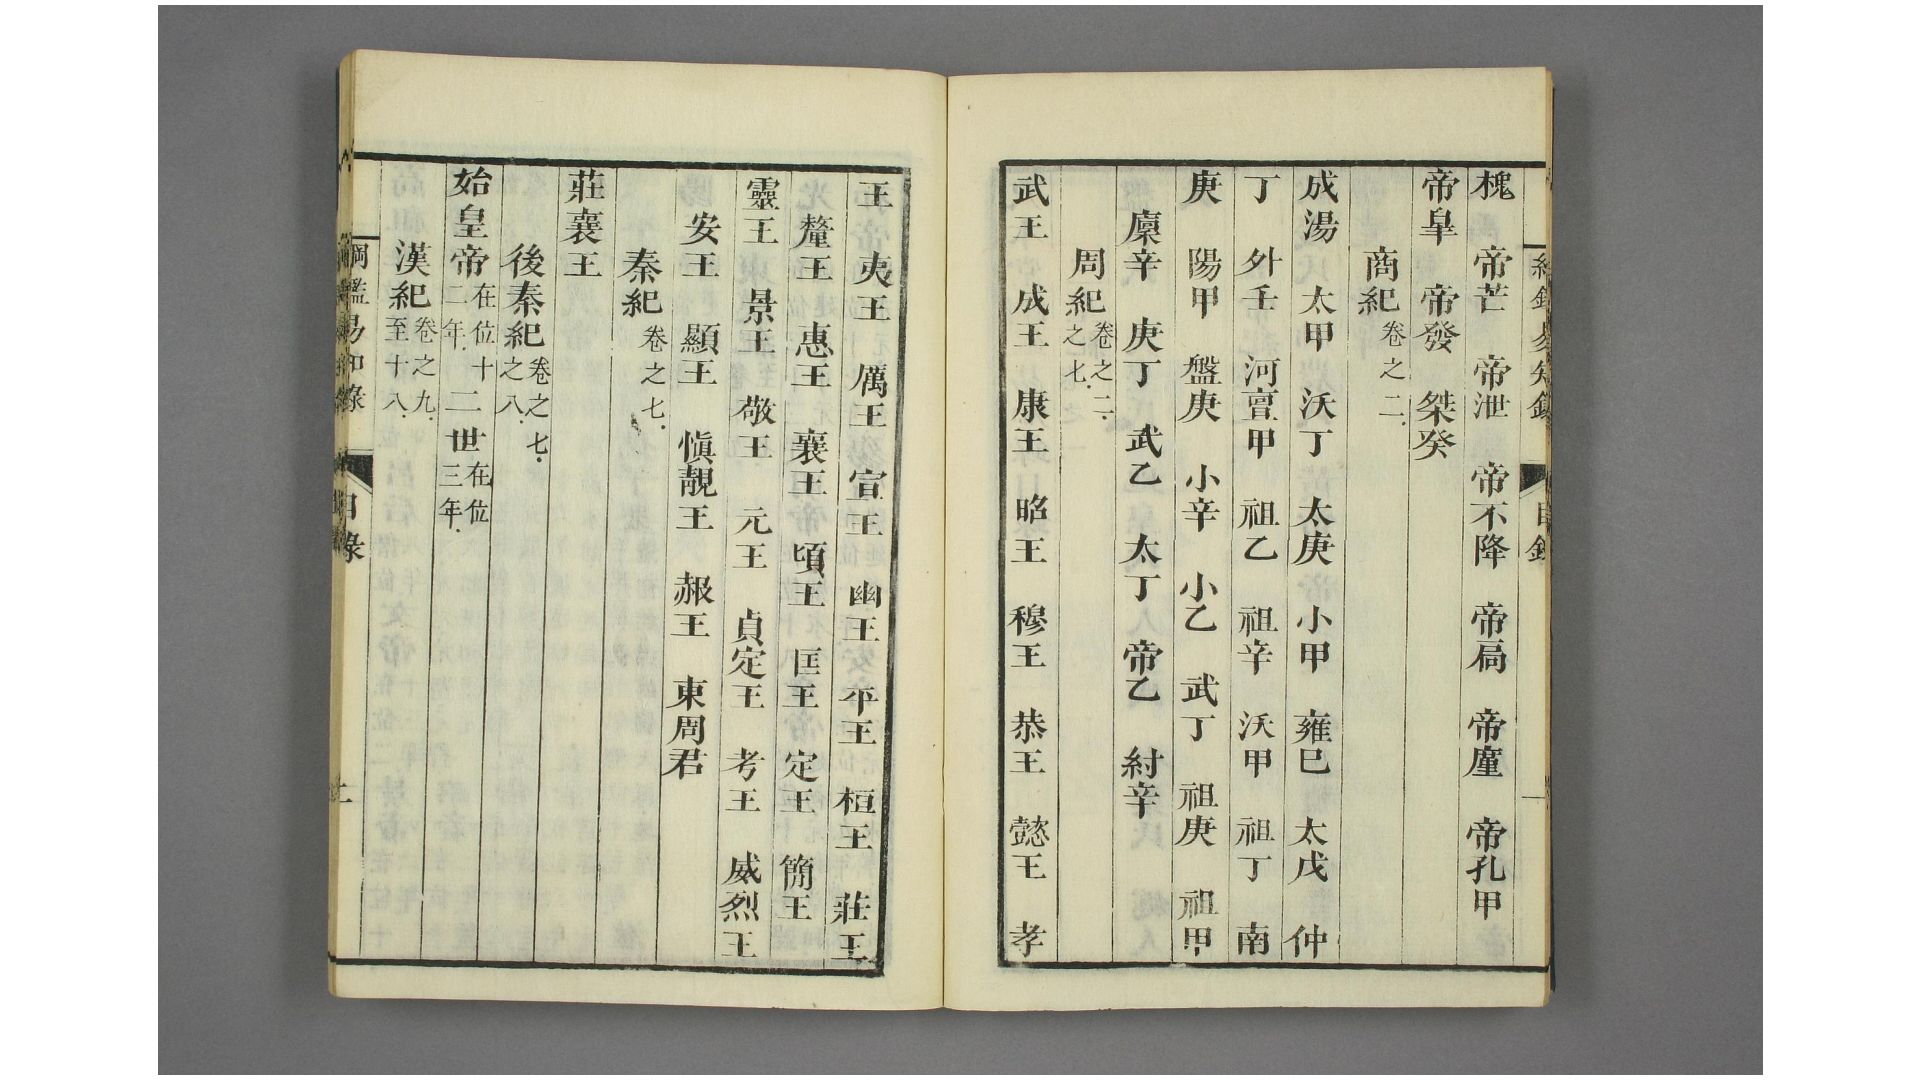 槐 帝芒 帝泄 帝不降 帝扃 帝廑 帝孔甲
帝皐 帝發 桀癸
商紀卷之二
成湯 太甲 沃丁 太庚 小甲 雍巳 太戊 仲
丁 外壬 河亶甲 祖乙 祖辛 沃甲 祖丁 南
庚 陽甲 盤庚 小辛 小乙 武丁 祖庚 祖甲
廩辛 庚丁 武乙 太丁 帝乙 紂辛
周紀卷之二之七
武王 成王 康王 昭王 穆王 恭王 懿王 孝
王 夷王 厲王 宣王 幽王 平王 桓王 莊王
釐王 惠王 襄王 頃王 匡王 定王 簡王
靈王 景王 敬王 元王 貞定王 考王 威烈王
安王 顯王 愼靚王 赧王 東周君
秦紀卷之七
莊襄王
後秦紀卷之七之八
始皇帝在位十二年 二世在位三年
漢紀卷之九至十八
綱鑑易知錄 目錄 二